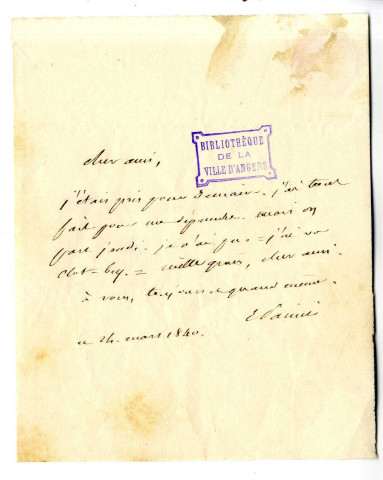 BIBLIOTHÈQUE
DE LA
VILLE D'ANGERS
cher ami,
j'étais pris pour demain. j'ai tout
fait pour me dépendre. mais on
part jeudi. je n'ai pas = j'ai vu
Clot = bey. = mille graces, cher ami.
à vous, toujours et quand même.
E Pavie
ce 24 mars 1840.